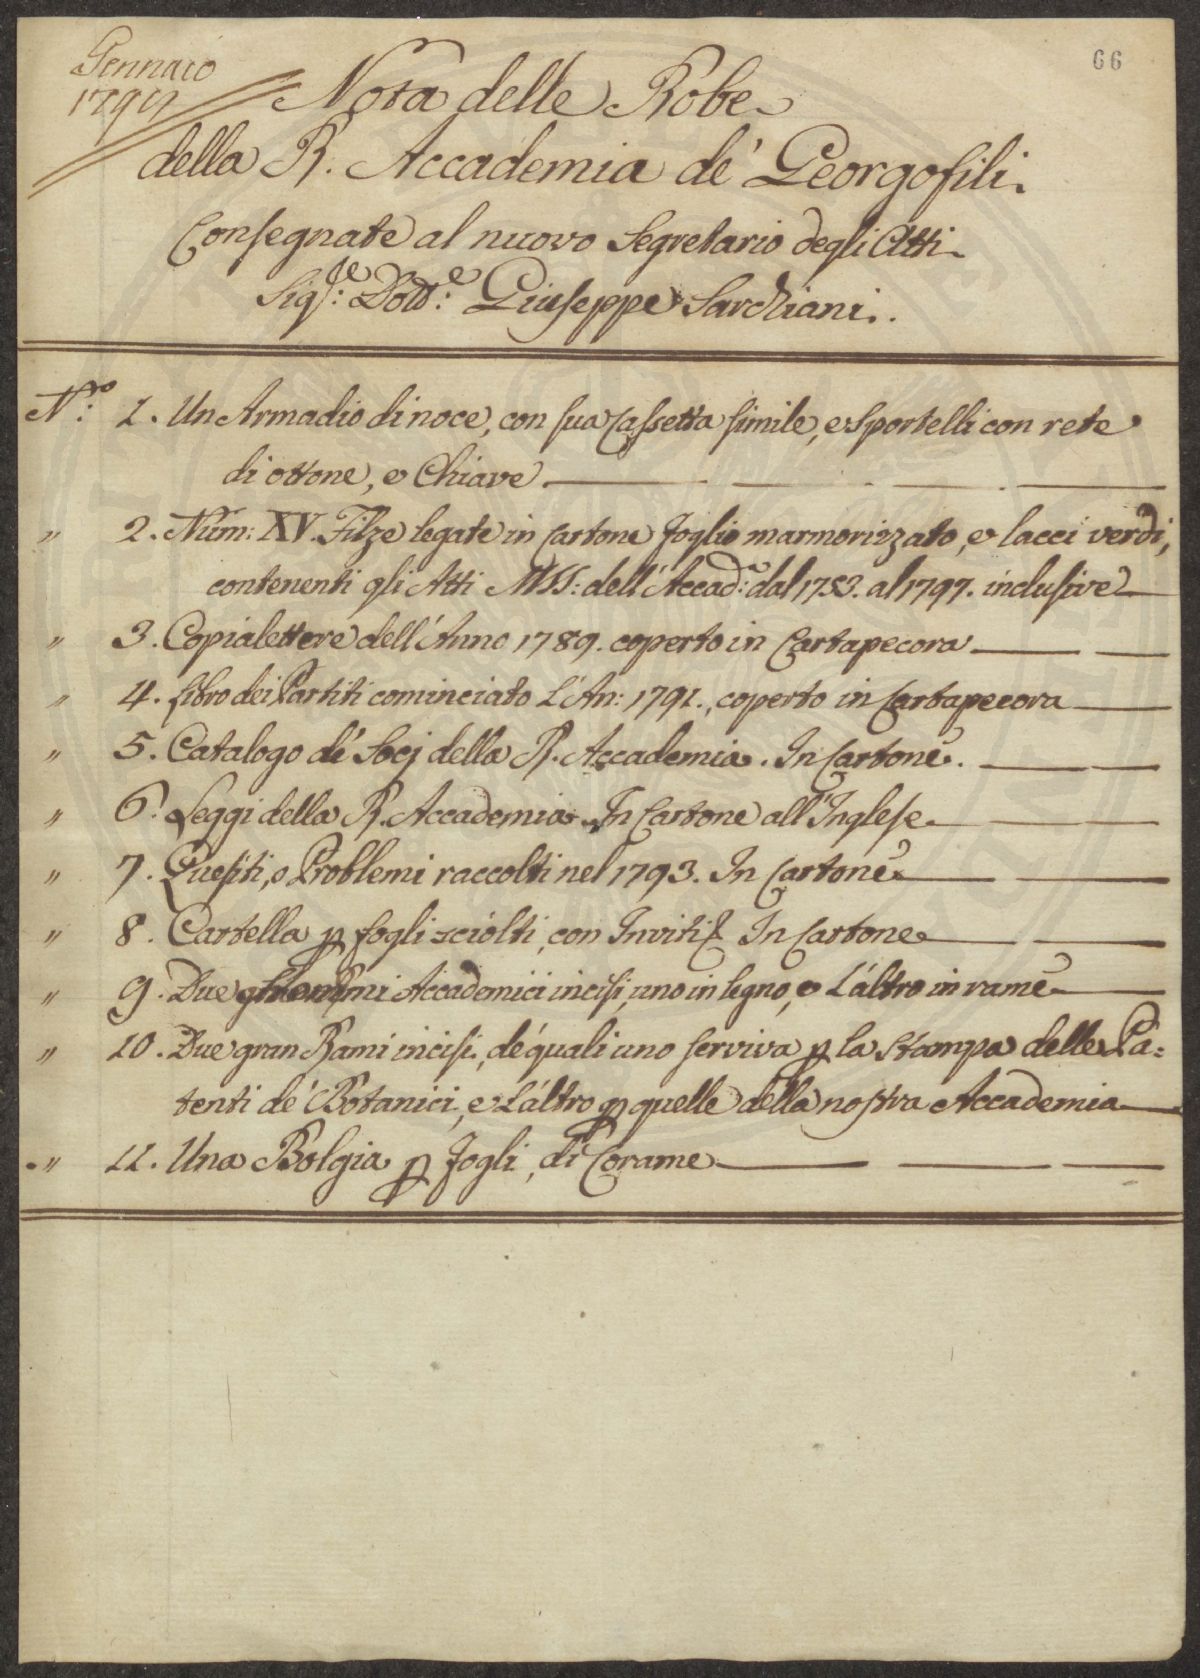 Gennaio
66
Nota delle Robe
della R. Accademia de' Georgofili.
Consegnate al nuovo Segretario degli Atti
Sig.re: Dott.e: Giuseppe Sarchiani.
N.ro: 1. Un Armadio di noce, con sua Cassetta simile, e Sportelli con rete
di ottone, e Chiave
" 2. Num: XV. Filze legate in cartone foglio marmorizzato, e lacci verdi,
contenenti gli Atti MSS: dell'Accad.a: dal 1753. al 1797. inclusive
" 3. Copialettere dell'Anno 1789. coperto in Cartapecora
" 4. Libro dei Partiti cominciato L'An: 1791., coperto in Cartapecora
" 5. Catalogo de' Socj della R. Accademia. In Cartone.
" 6. Leggi della R. Accademia. In Cartone all'Inglese
" 7. Quesiti, o Problemi raccolti nel 1793. In Cartone
" 8. Cartella p fogli sciolti, con Inviti In Cartone
" 9. Due Accademici incisi, uno in legno, e L'altro in rame
" 10. Due gran Rami incisi, de' quali uno serviva p la Stampa delle Pa=
tenti de' Botanici, e L'altro p quelle della nostra Accademia
" 11. Una Bolgia p fogli, di Corame